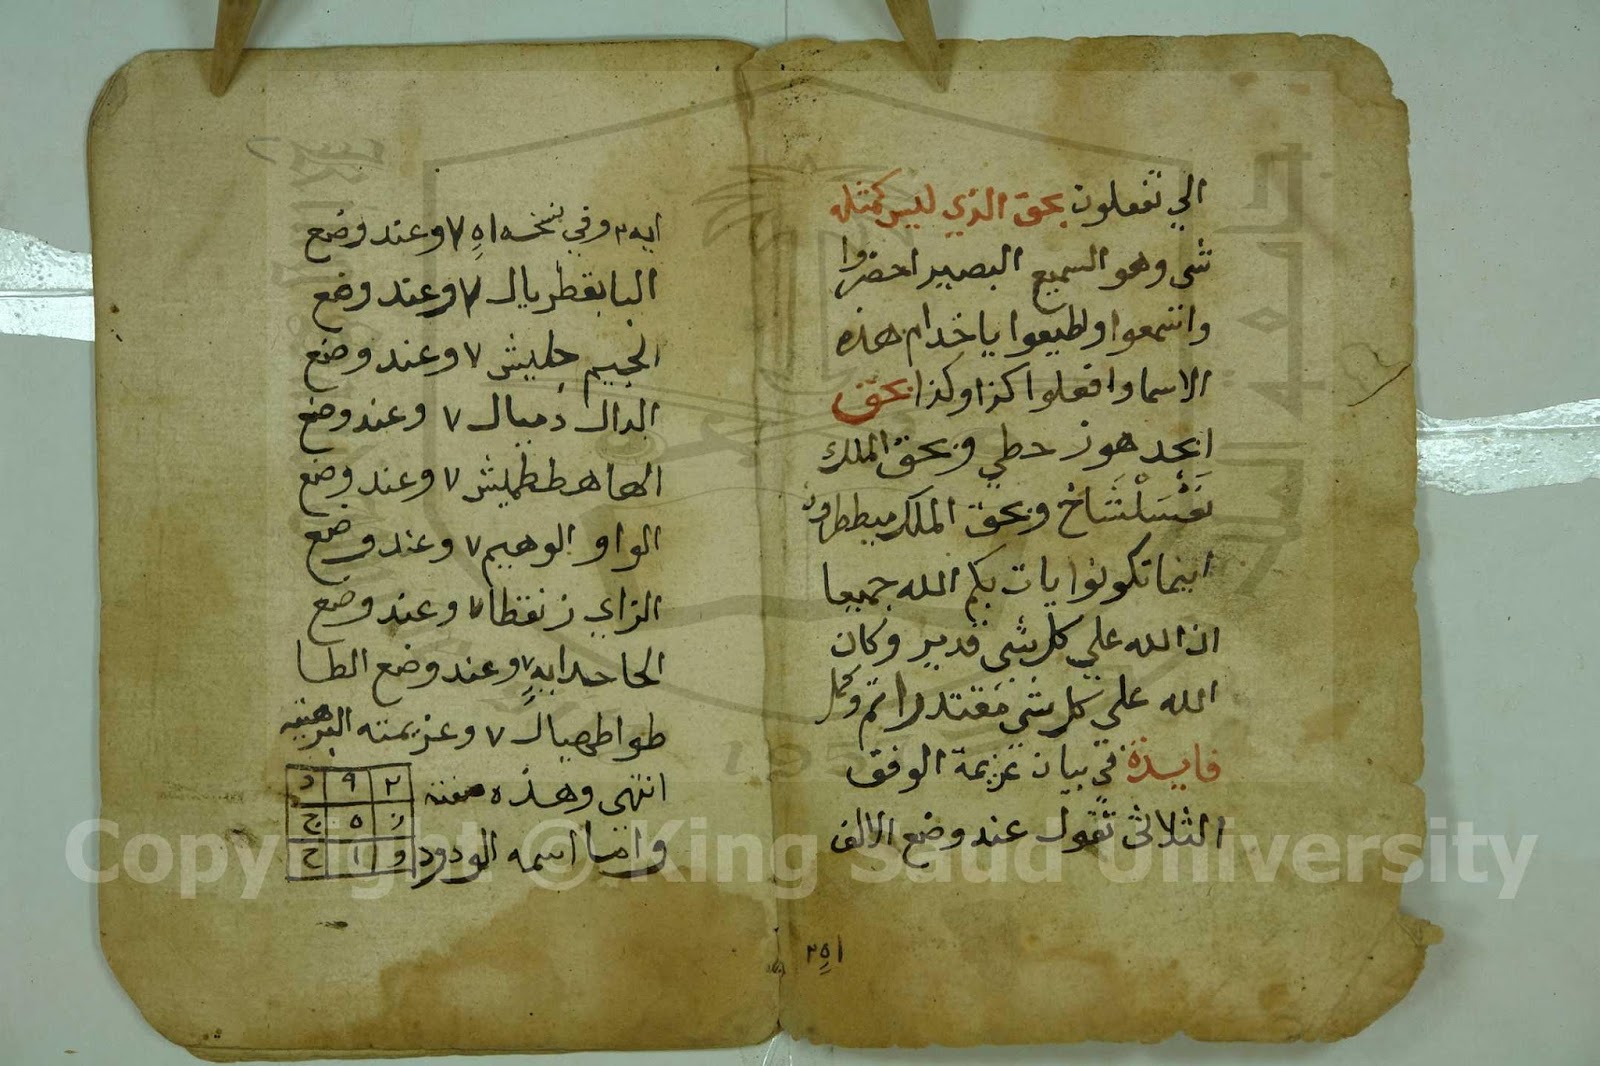 الي تفعلون بحق الذي ليس كمثله
شي وهو السميع البصير احضروا
واسمعوا واطيعوا يا خدام هذه
الاسما وافعلوا كذا وكذا بحق
ابجد هوز حطي وبحق الملك
وبحق الملك ميططرون
اينما تكونوا يات بكم الله جميعا
ان الله علي كل شي قدير وكان
الله علي كل شي مقتدرا تم وكمل
فايدة في بيان عزيمة الوفق
الثلاثي تقول عند وضع الالف
ايه ٢ وفي نسخه اه ٧ وعند وضع
البا بقطريال ٧ وعند وضع
الجيم جليش ٧ وعند وضع
الدال دميال ٧ وعند وضع
الها هططميش ٧ وعند وضع
الواو الوهيم ٧ وعند وضع
الزاي زنقطا ٧ وعند وضع
الحا حدايه ٧ وعند وضع الطا
طواطهيال ٧ وعزيمته البرهتيه
انتهي وهذه صفته
واما اسمه الودود
٢ ٩ د
ز ٥ ج
و ١ ح
Copyright © King Saud University